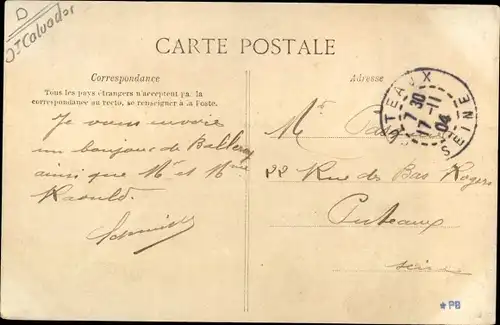 D
Dt Calvados
CARTE POSTALE
Correspondance
Tous les pays étrangers n'acceptent pas la
correspondance au recto, se renseigner à la Poste.
Adresse
PUTEAUX
7 30
17 -11
04
SEINE
Je vous envoie
un bonjour de Balleroy
ainsi que Mr et Mme
Raould.
Schmidt
Mr
22 Rue des Bas Rogers
Puteaux
Seine
*PB